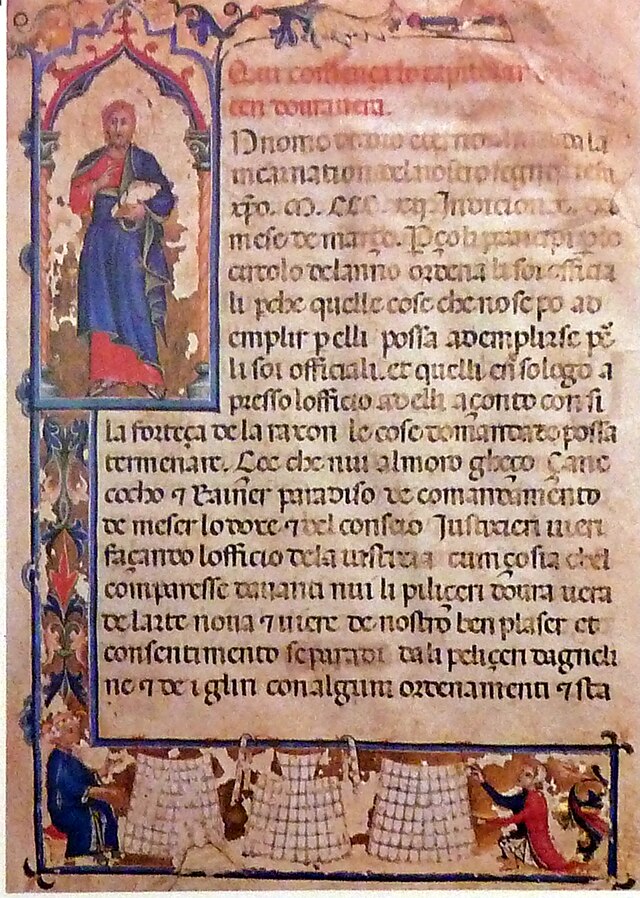 Qui comença lo capitolar
ceri dourauera.
N nomo de dio eterno da la
incarnation del nostro segnor
xp̄o. M. CCC. xij. Indicion x. del
mese de março. Perço li principi plo
circolo delanno ordena li soi officia
li pche quelle cose che no se po ad
emplir p elli possa adempliarse pē
li soi officiali. et quelli en so logo a
presso lofficio ad elli açonto con si
la forteça de la raxon le cose domandate possa
termenare. Çoe che nui almoro gheço çane
cocho ⁊ Rainer paradiso de comandamento
de meser lo doxe ⁊ del conseio Justixieri uieri
façando lofficio dela iustixia cum ço sia chel
comparesse dauanti nui li piliçeri doura uera
de larte noua ⁊ uiere de nostro ben plaser et
consentimento separadi da li peliçeri dagneli
ne ⁊ de i gliri con alguni ordenamenti ⁊ sta